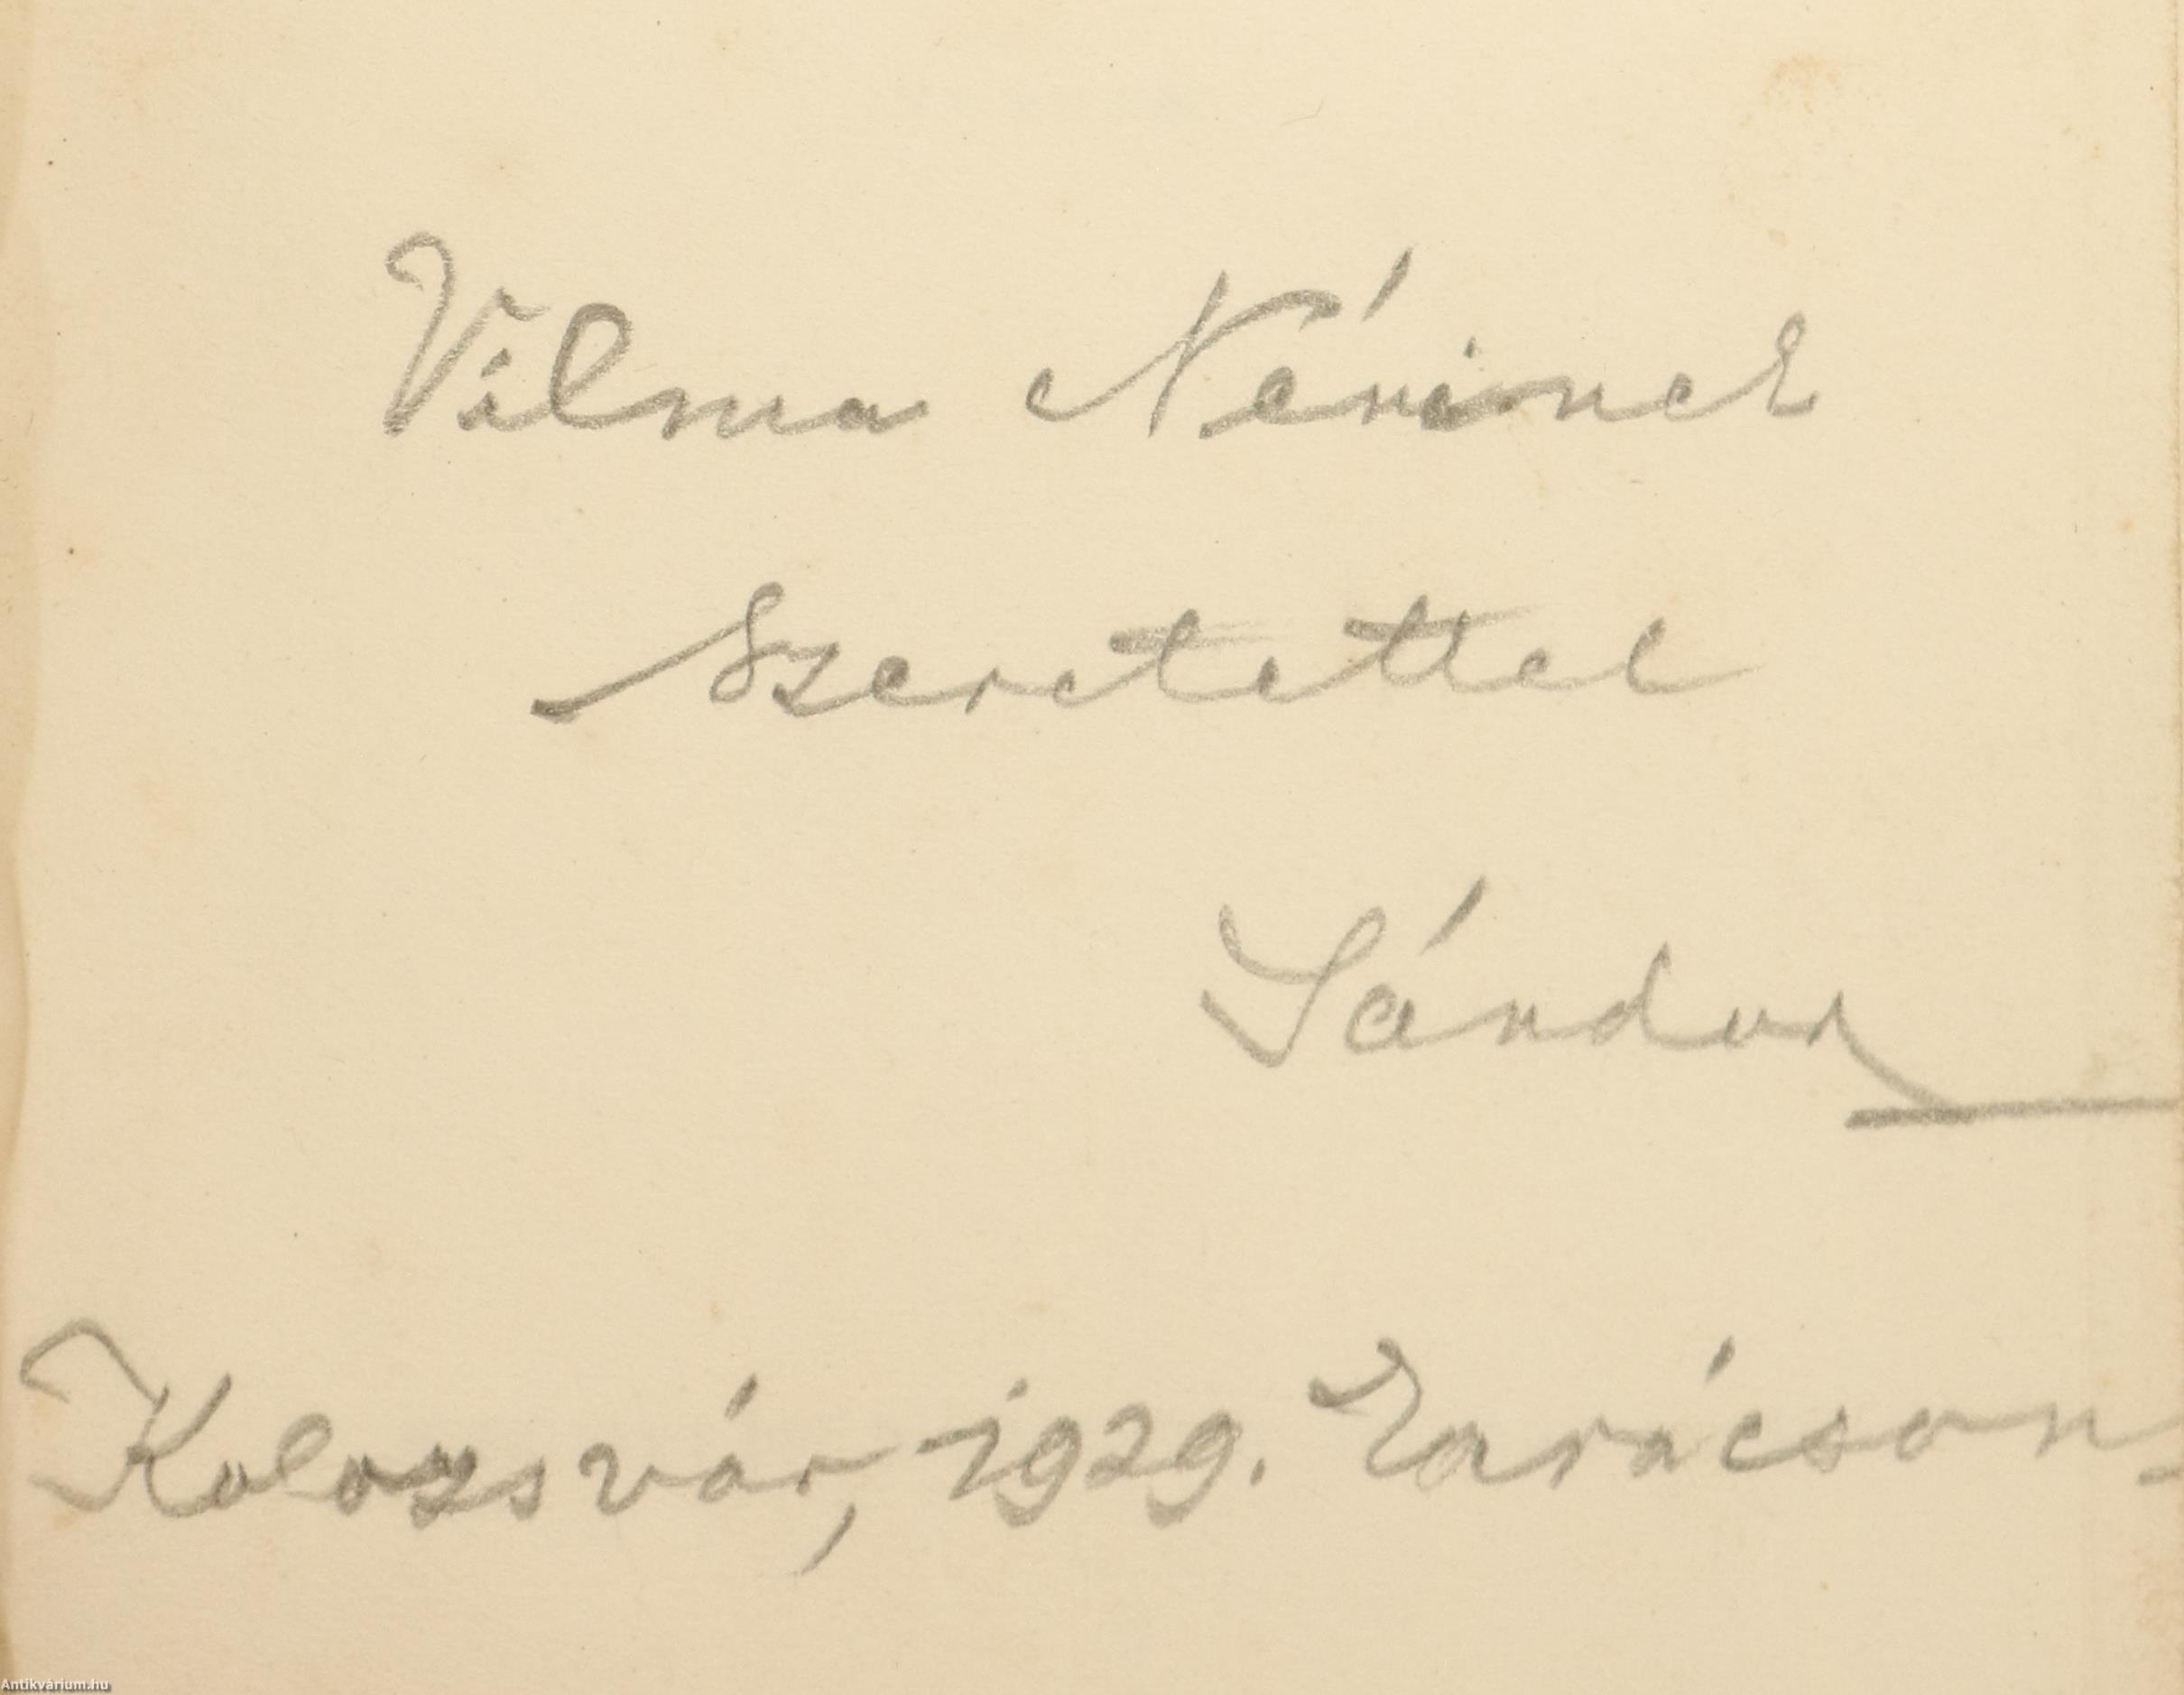 Vilma Néninek
szeretettel
Sándor
Kolozsvár, 1929. Karácson
Antikvárium.hu